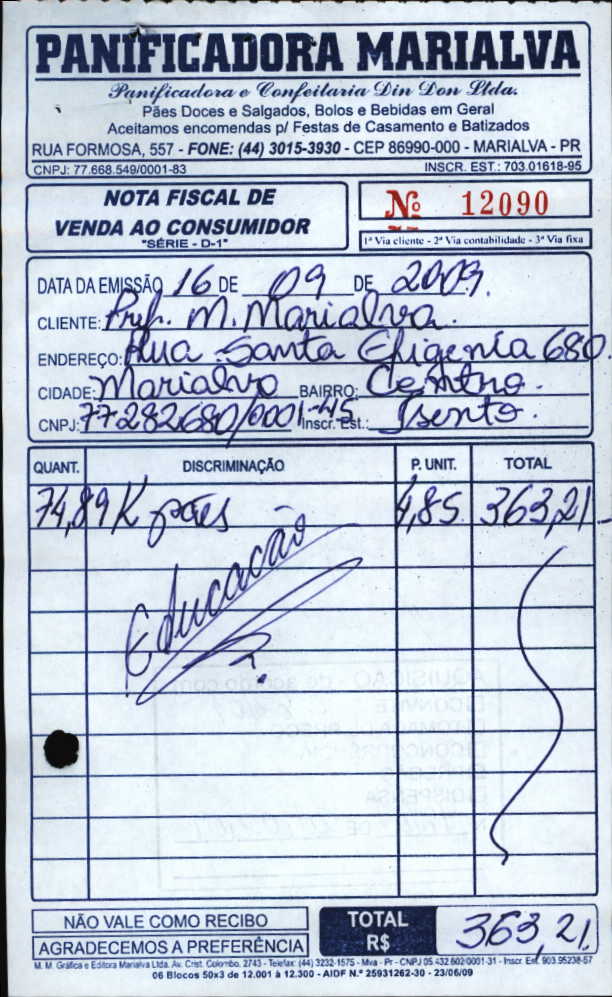 PANIFICADORA MARIALVA
Panificadora e Confeitaria Din Don Ltda.
Pães Doces e Salgados, Bolos e Bebidas em Geral
Aceitamos encomendas p/ Festas de Casamento e Batizados
RUA FORMOSA, 557 - FONE: (44) 3015-3930 - CEP 86990-000 - MARIALVA - PR
CNPJ: 77.668.549/0001-83 INSCR. EST.: 703.01618-95
NOTA FISCAL DE
VENDA AO CONSUMIDOR
"SÉRIE - D-1"
Nº 12090
1ª Via cliente - 2ª Via contabilidade - 3ª Via fixa
DATA DA EMISSÃO 16 DE 09 DE 2009.
CLIENTE: Pref. M. Marialva.
ENDEREÇO: Rua Santa Efigenia 680
CIDADE: Marialva BAIRRO: Centro.
CNPJ: 77282680/0001-45 Inscr. Est.: Isento.
QUANT. DISCRIMINAÇÃO P. UNIT. TOTAL
74,89 K pães 4,85 363,21
Educação
AQUISIÇÃO - de acordo com
CONVITE
TOMADA DE PREÇO
CONCORRÊNCIA
PREGÃO
DISPENSA
NÃO VALE COMO RECIBO
AGRADECEMOS A PREFERÊNCIA
TOTAL R$ 363,21
M. M. Gráfica e Editora Marialva Ltda. Av. Crist. Colombo, 2743 - Telefax: (44) 3232-1575 - Mva - Pr - CNPJ 05.432.602/0001-31 - Inscr. Est. 903.95238-57
06 Blocos 50x3 de 12.001 à 12.300 - AIDF N.º 25931262-30 - 23/06/09